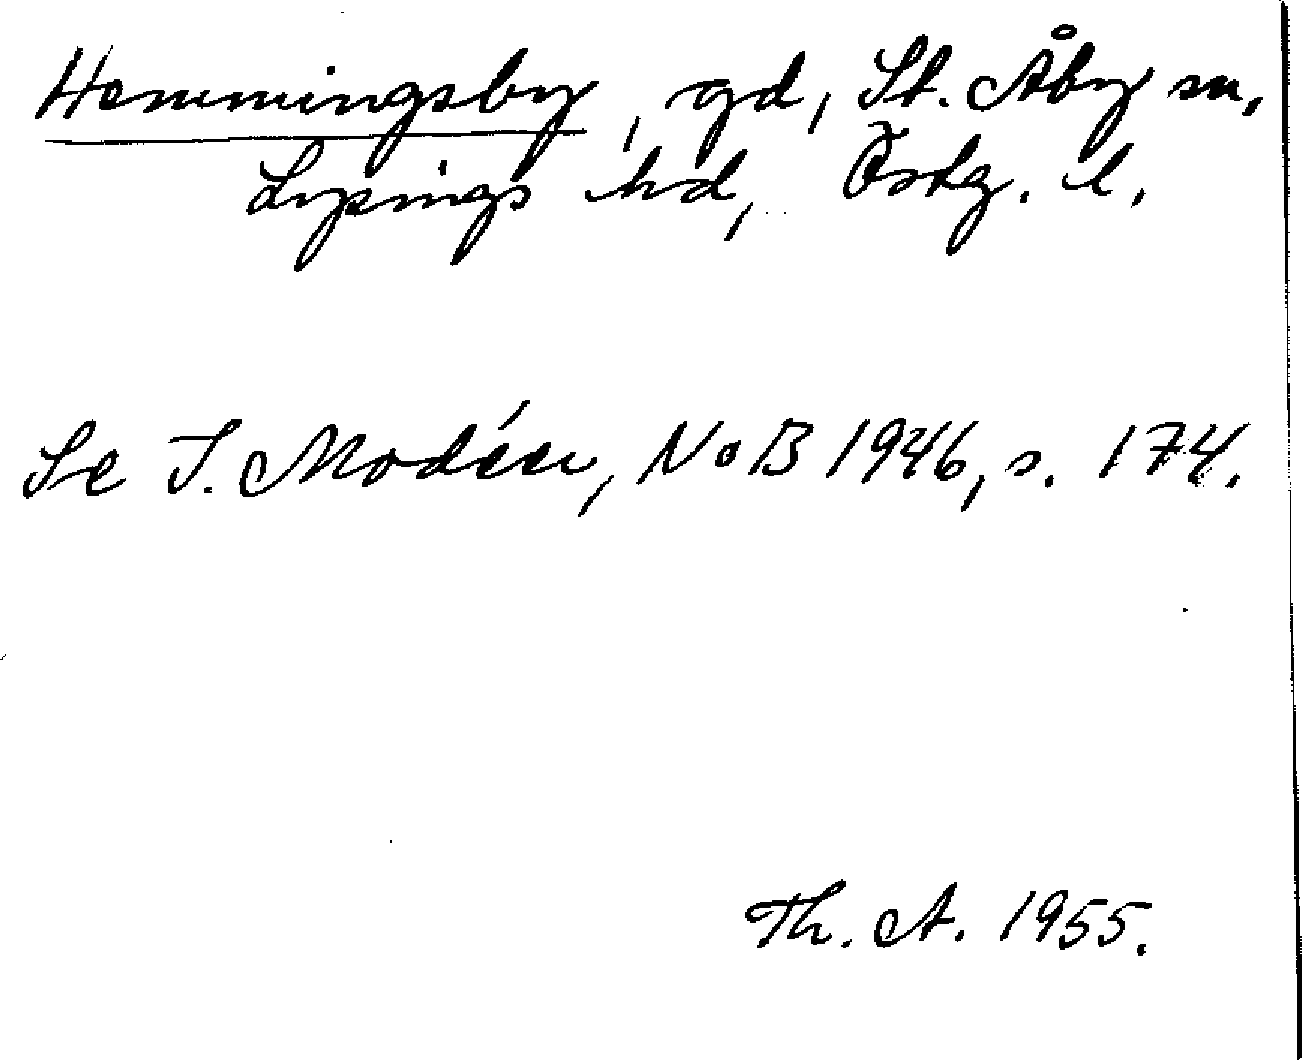 Hemmingsby, gd, St. Åby sn,
Lysings hd, Östg. l.
Se I. Modéer, NoB 1946, s. 174.
Th. A. 1955.